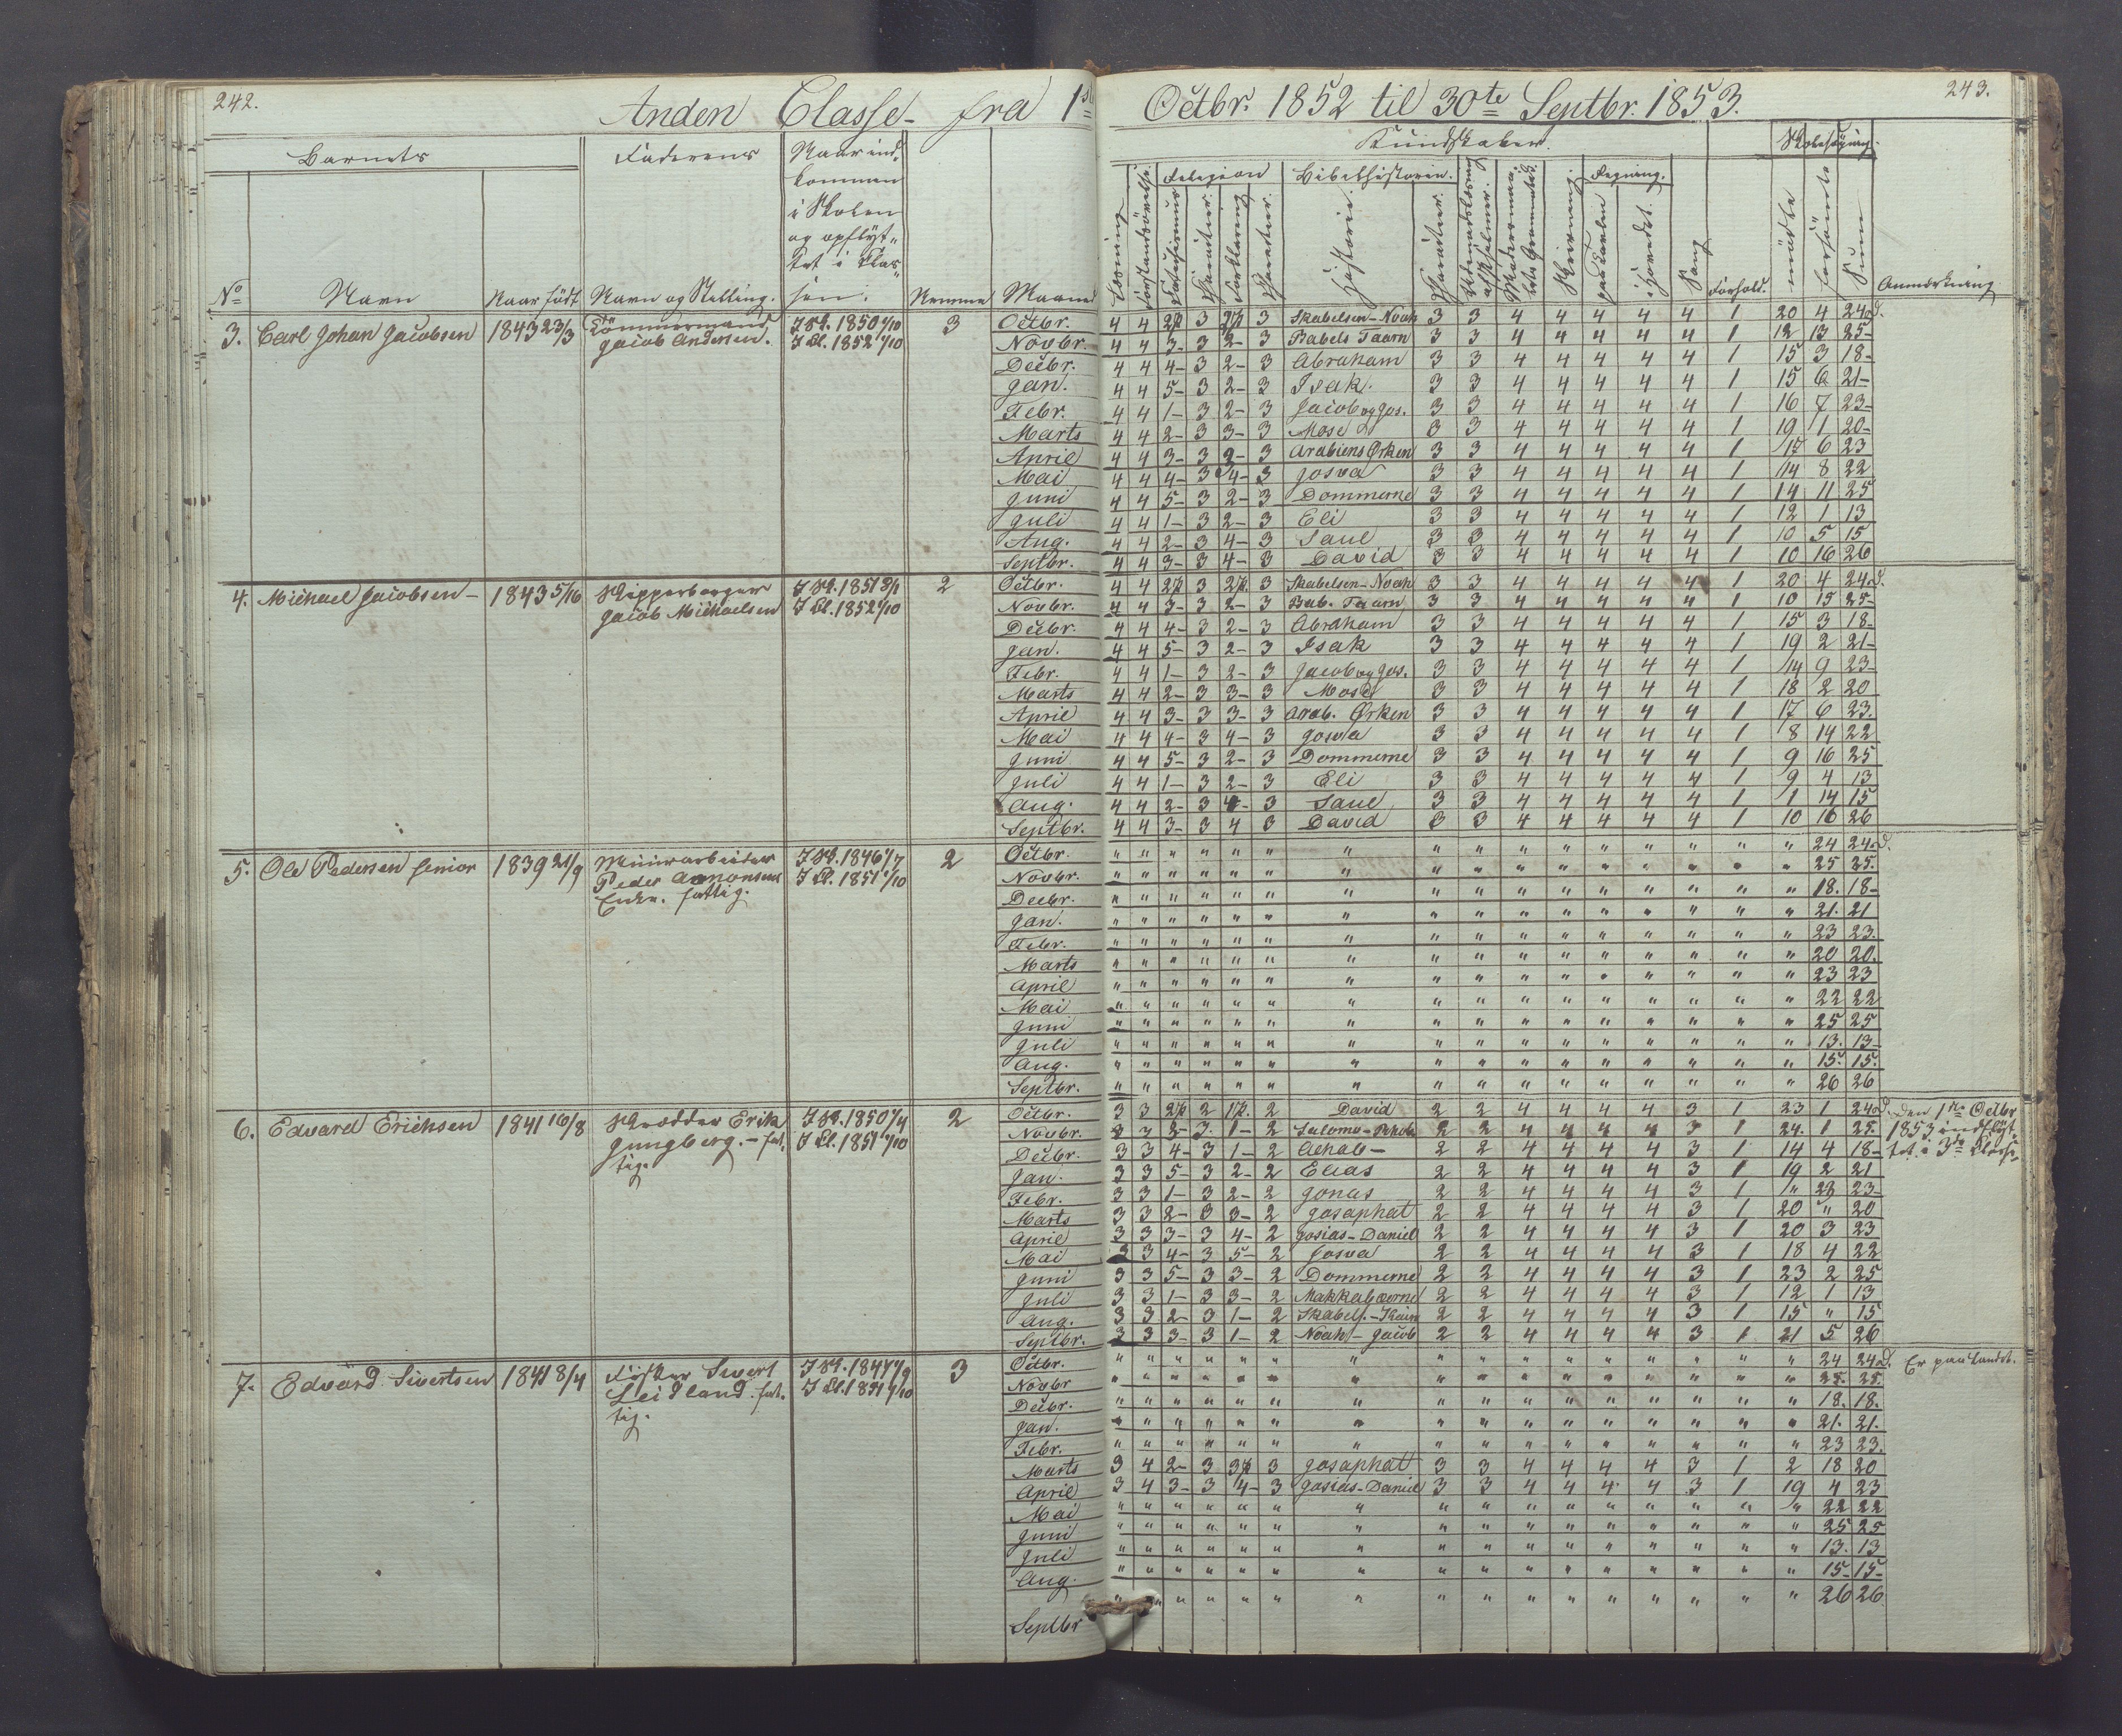 242.
Anden Classe - fra 1ste
Octbr. 1852 til 30te Septbr. 1853.
243.
Barnets
Faderens
Naar ind-
kommen
i Skolen
og opflyt-
tet i Clas-
sen.
No
Navn
Naar født
Navn og Stilling.
Nemme
Maaned
Kundskaber.
Skolesøgning.
Religion
Bibelhistorie.
Regning.
Læsning
Forklaring
Historie.
Skrivning.
paa Tavlen
i Hovedet.
Sang
Forhold.
mødte
forsømte
Sum
Anmærkning
3. Carl Johan Jacobsen 1843 23/3 Tømmermand I Sk. 1850 1/10 3
Jacob Andersen. I Cl. 1852 1/10
Octbr. 4 4 3 3 Skabelsen-Noah 3 3 4 4 4 4 4 1 20 4 24 d.
Novbr. 4 4 3- 3 2- 3 Babels Taarn 3 3 4 4 4 4 4 1 12 13 25-
Decbr. 4 4 4- 3 2- 3 Abraham 3 3 4 4 4 4 4 1 15 3 18-
Jan. 4 4 5- 3 2- 3 Isak. 3 3 4 4 4 4 4 1 15 6 21-
Febr. 4 4 1- 3 2- 3 Jacob og Jos. 3 3 4 4 4 4 4 1 16 7 23-
Marts 4 4 2- 3 3- 3 Mose 3 3 4 4 4 4 4 1 19 1 20-
April 4 4 3- 3 2- 3 Arabiens Ørken 3 3 4 4 4 4 4 1 17 6 23
Mai 4 4 4- 3 4- 3 Josva 3 3 4 4 4 4 4 1 14 8 22
Juni 4 4 5- 3 2- 3 Dommerne 3 3 4 4 4 4 4 1 14 11 25
Juli 4 4 1- 3 2- 3 Eli 3 3 4 4 4 4 4 1 12 1 13
Aug. 4 4 2- 3 4- 3 Saul 3 3 4 4 4 4 4 1 10 5 15
Septbr. 4 4 3- 3 4- 3 David 3 3 4 4 4 4 4 1 10 16 26
4. Michael Jacobsen - 1843 5/10 Skipperborger I Sk. 1851 I Cl. 1852 1/10 2
Jacob Michaelsen
Octbr. 4 4 3 3 Skabelsen-Noah 3 3 4 4 4 4 4 1 20 4 24 d.
Novbr. 4 4 3- 3 2- 3 Bab. Taarn 3 3 4 4 4 4 4 1 10 15 25-
Decbr. 4 4 4- 3 2- 3 Abraham 3 3 4 4 4 4 4 1 15 3 18-
Jan. 4 4 5- 3 2- 3 Isak 3 3 4 4 4 4 4 1 19 2 21-
Febr. 4 4 1- 3 2- 3 Jacob og Jos. 3 3 4 4 4 4 4 1 14 9 23-
Marts 4 4 2- 3 3- 3 Mose 3 3 4 4 4 4 4 1 18 2 20
April 4 4 3- 3 3- 3 Arab. Ørken 3 3 4 4 4 4 4 1 17 6 23.
Mai 4 4 4- 3 4- 3 Josva 3 3 4 4 4 4 4 1 8 14 22
Juni 4 4 5- 3 2- 3 Dommerne 3 3 4 4 4 4 4 1 9 16 25
Juli 4 4 1- 3 2- 3 Eli 3 3 4 4 4 4 4 1 9 4 13
Aug. 4 4 2- 3 4- 3 Saul 3 3 4 4 4 4 4 1 1 14 15
Septbr. 4 4 3- 3 4 3 David 3 3 4 4 4 4 4 1 10 16 26
5. Ole Pedersen senior 1839 21/9 Muurarbeider I Sk. 1846 1/7 2
Peder I Cl. 1851 1/10
fattig.
Octbr. " " " " " " " " " " " " " " " " 24 24 d.
Novbr. " " " " " " " " " " " " " " " " 25 25.
Decbr. " " " " " " " " " " " " " " " " 18. 18-
Jan. " " " " " " " " " " " " " " " " 21. 21
Febr. " " " " " " " " " " " " " " " " 23 23.
Marts " " " " " " " " " " " " " " " " 20 20.
April " " " " " " " " " " " " " " " " 23 23
Mai " " " " " " " " " " " " " " " " 22 22
Juni " " " " " " " " " " " " " " " " 25 25
Juli " " " " " " " " " " " " " " " " 13. 13-
Aug. " " " " " " " " " " " " " " " " 15. 15.
Septbr. " " " " " " " " " " " " " " " " 26 26
6. Edvard Erichsen 1841 16/8 Skrædder Erik I Sk. 1850 1/4 2
Jungberg. - fat- I Cl. 1851 1/10
tig.
Octbr. 3 3 2 2 David 2 2 4 4 4 4 3 1 23 1 24 d. Den 1ste Octbr
Novbr. 3 3 3- 3 1- 2 Salomo- 2 2 4 4 4 4 3 1 24. 1 25. 1853 indflyt-
Decbr. 3 3 4- 3 1- 2 Achab- 2 2 4 4 4 4 3 1 14 4 18- tet i 3die Classe
Jan. 3 3 5- 3 2- 2 Elias 2 2 4 4 4 4 3 1 19 2 21
Febr. 3 3 1- 3 2- 2 Jonas 2 2 4 4 4 4 3 1 23-
Marts 3 3 2- 3 3- 2 Josaphat 2 2 4 4 4 4 3 1 20 " 20
April 3 3 3- 3 4- 2 Josias-Daniel 2 2 4 4 4 4 3 1 20 3 23
Mai 3 3 4- 3 5- 2 Josva 2 2 4 4 4 4 3 1 18 4 22
Juni 3 3 5- 3 3- 2 Dommerne 2 2 4 4 4 4 3 1 23 2 25
Juli 3 3 1- 3 3- 2 Makkabæerne 2 2 4 4 4 4 3 1 12 1 13
Aug. 3 3 2- 3 1- 2 Skabels.-Kain 2 2 4 4 4 4 3 1 15 " 15
Septbr. 3 3 3- 3 1- 2 Noah-Jacob 2 2 4 4 4 4 3 1 21 5 26
7. Edvard Sivertsen 1841 8/4 Fisker Sivert I Sk. 1847 1/9 3
Leidland. fat- I Cl. 1851 1/10
tig.
Octbr. " " " " " " " " " " " " " " " " 24 24 d. Er paa Landet.
Novbr " " " " " " " " " " " " " " " " 25. 25.
Decbr. " " " " " " " " " " " " " " " " 18. 18.
Jan. " " " " " " " " " " " " " " " " 21. 21.
Febr. " " " " " " " " " " " " " " " " 23 23.
Marts 3 4 2- 3 3 Josaphat 3 3 4 4 4 4 3 1 2 18 20
April 3 4 3- 3 4- 3 Josias-Daniel 3 3 4 4 4 4 3 1 19 4 23
Mai " " " " " " " " " " " " " " " " 22 22
Juni " " " " " " " " " " " " " " " " 25 25
Juli " " " " " " " " " " " " " " " " 13. 13
Aug. " " " " " " " " " " " " " " " " 15- 15-
Septbr " " " " " " " " " " " " " " " " 26 26